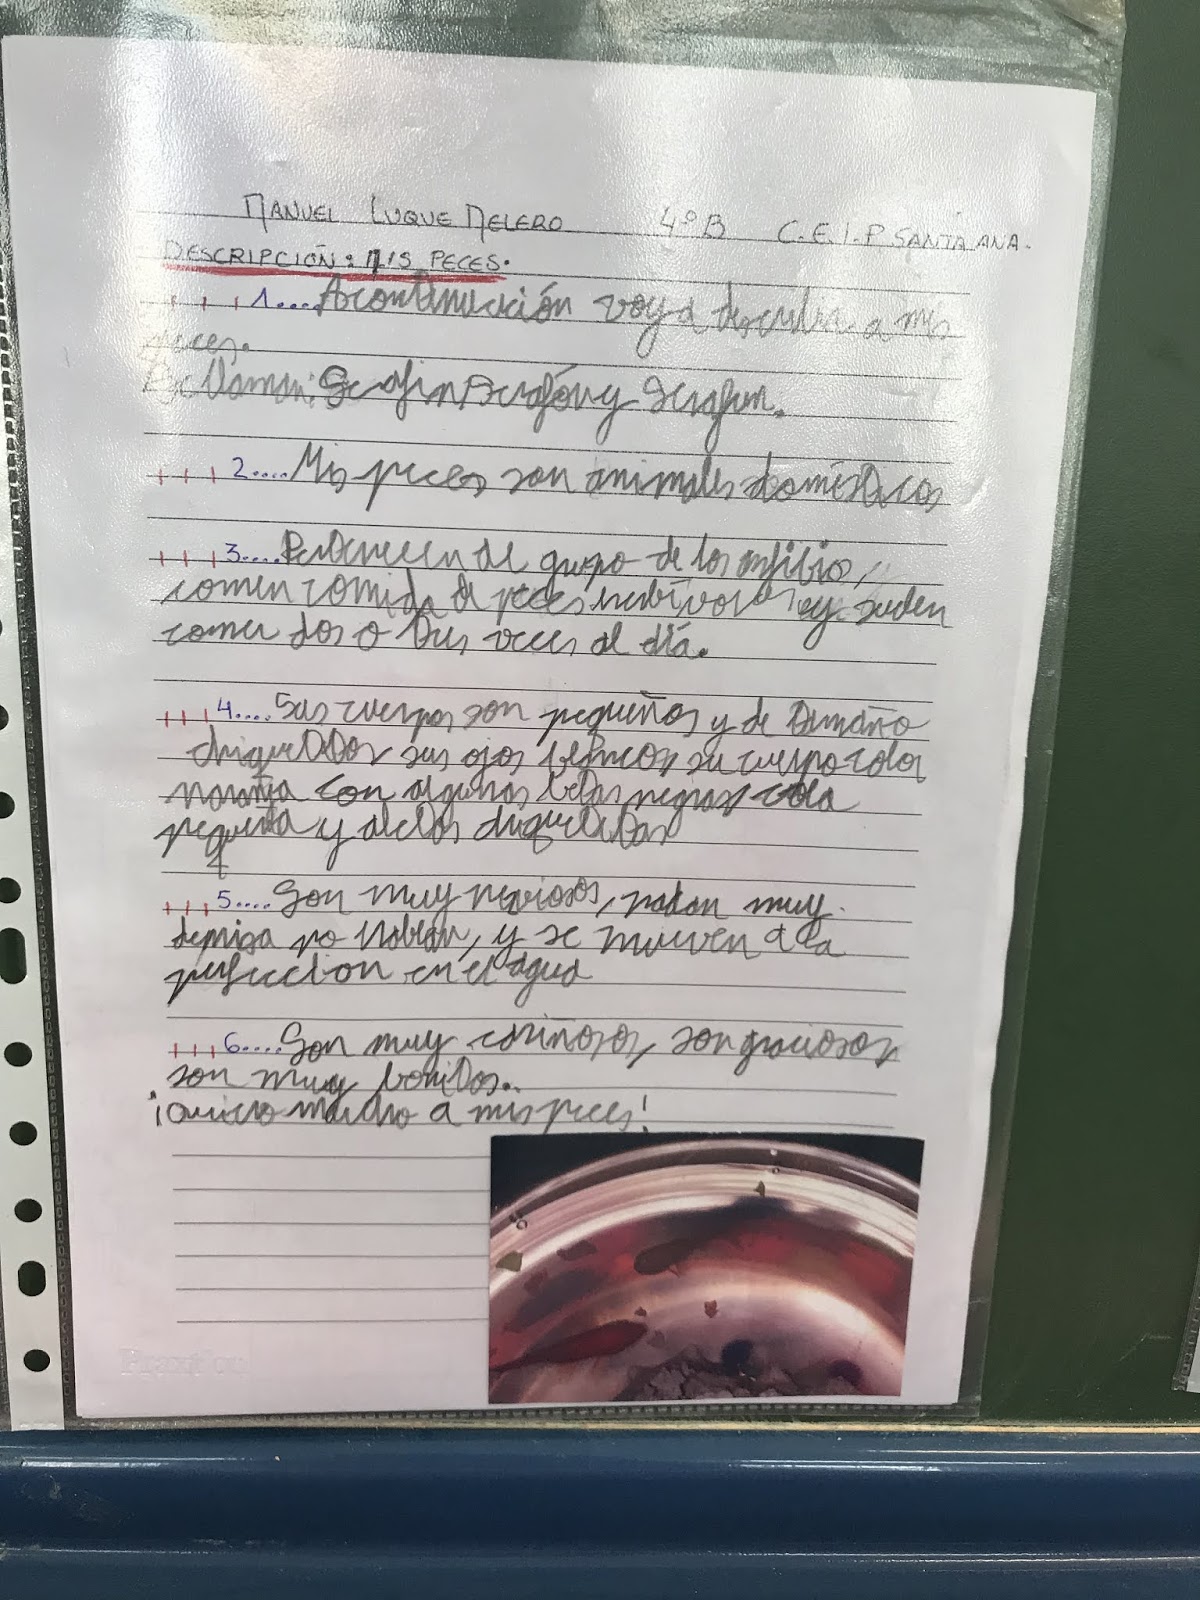 MANUEL LUQUE MELERO 4ºB C.E.I.P SANTA ANA.
DESCRIPCIÓN: MIS PECES.
1.... A continuación voy a describir a mis
peces.
Se llaman: Serafin, Serafón y Serafun.
2.... Mis peces son animales domésticos
3.... Pertenecen al grupo de los anfibios,
comen comida de peces y suelen
comer dos o tres veces al día.
4.... Sus cuerpos son pequeños y de tamaño
chiquititos sus ojos blancos su cuerpo color
naranja con algunas negras cola
pequeña y aletas chiquititas
5.... Son muy nerviosos, nadan muy
demisa no hablan, y se mueven a la
perfeccion en el agua
6.... Son muy cariñosos, son graciosos
son muy bonitos.
¡Quiero mucho a mis peces!